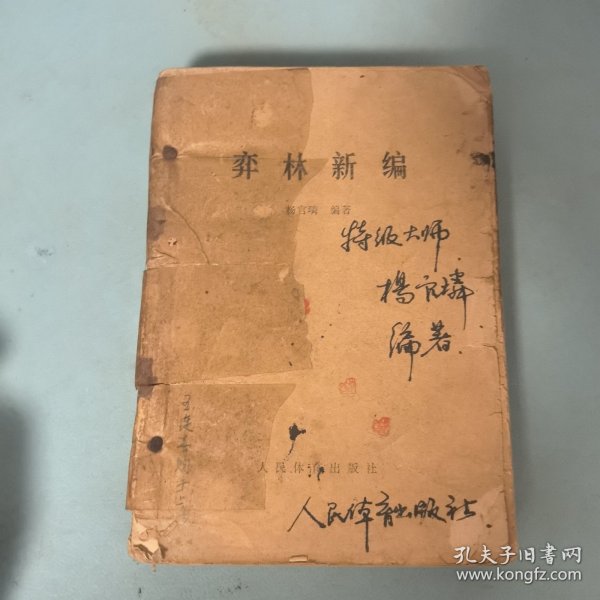 弈林新编
杨官璘 编著
特级大师
楊官璘
编著
人民体育出版社
人民体育出版社
孔夫子旧书网
www.kongfz.com